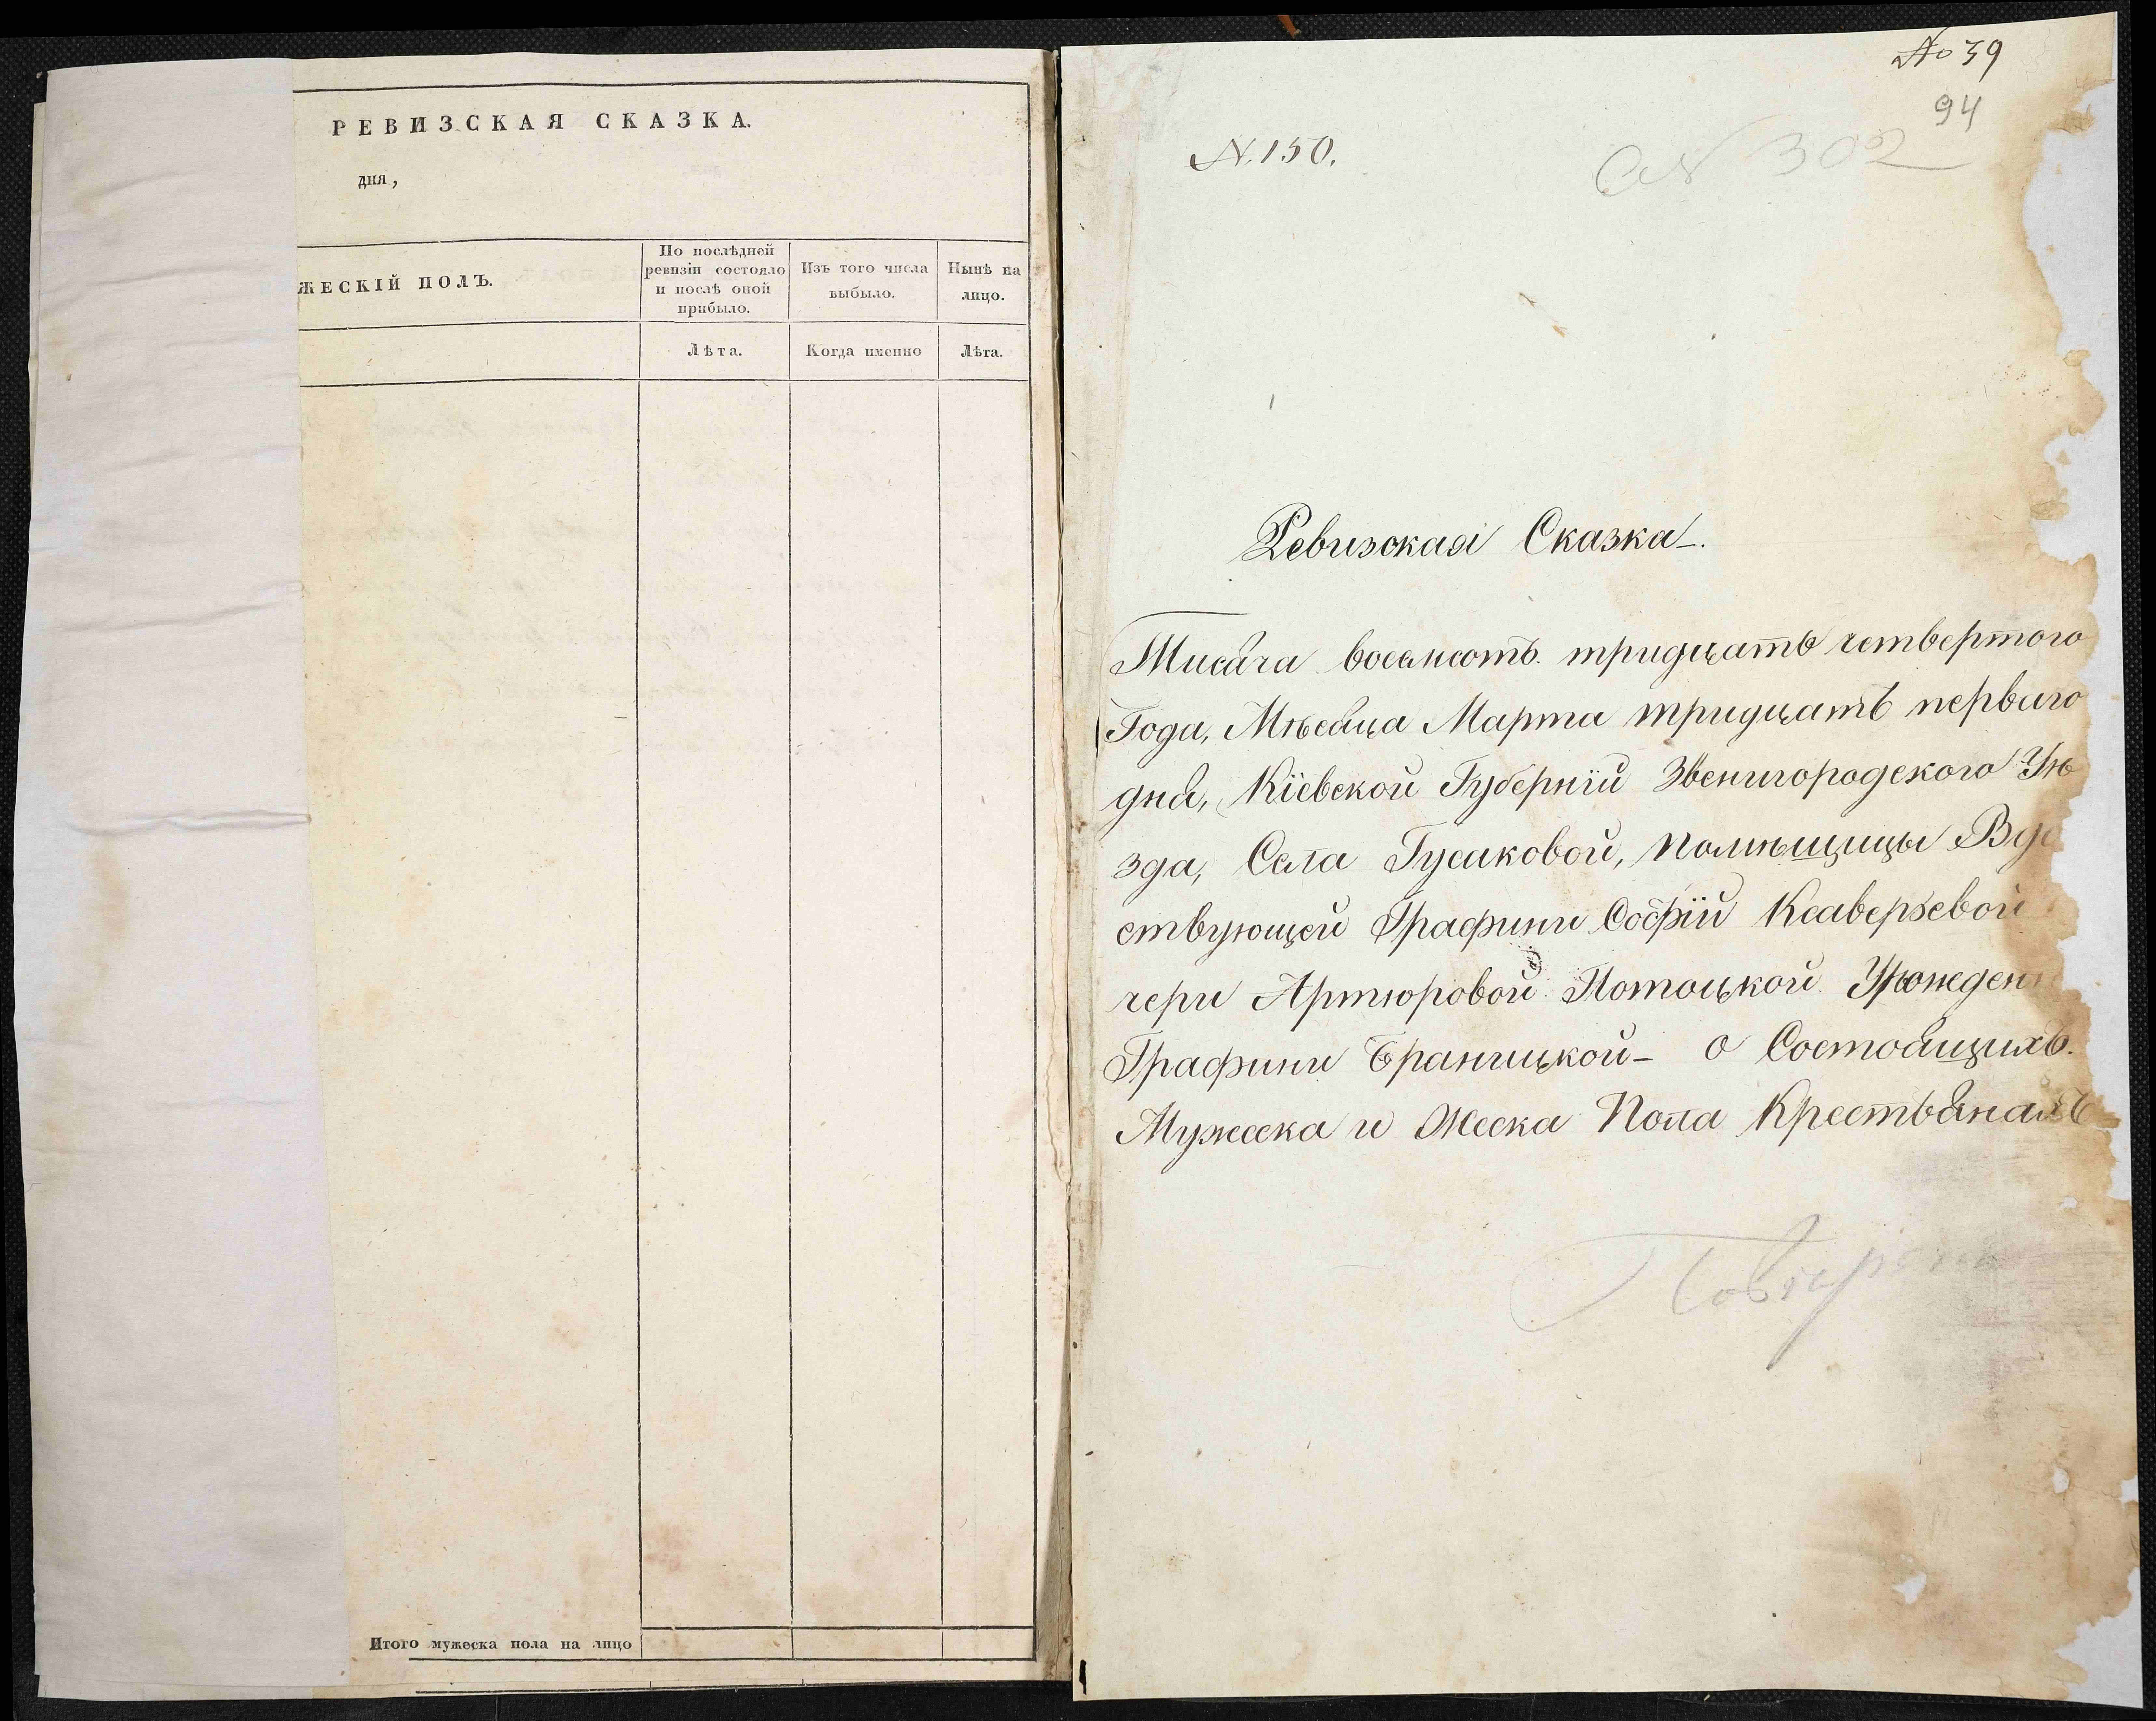 РЕВИЗСКАЯ СКАЗКА.
дня,
ЖЕСКІЙ ПОЛЪ.
По послѣдней
ревизіи состояло
и послѣ оной
прибыло.
Изъ того числа
выбыло.
Нынѣ на
лицо.
Лѣта.
Когда именно
Лѣта.
Итого мужеска пола на лицо
№ 39
94
N. 150.
№ 302
Ревизская Сказка.
Тисяча восемсотъ тридцать четвертого
Года, Мѣсяца Марта тридцать перваго
дня, Кіевской Губерніи Звенигородского Уѣ
зда, Села Гусаковой, Помѣщицы Вдо
ствующей Графини Софіи Ксаверьевой
чери Артюровой Потоцкой Урожден
Графини Браницкой - о Состоящихъ
Мужеска и Жеска Пола Крестьянахъ